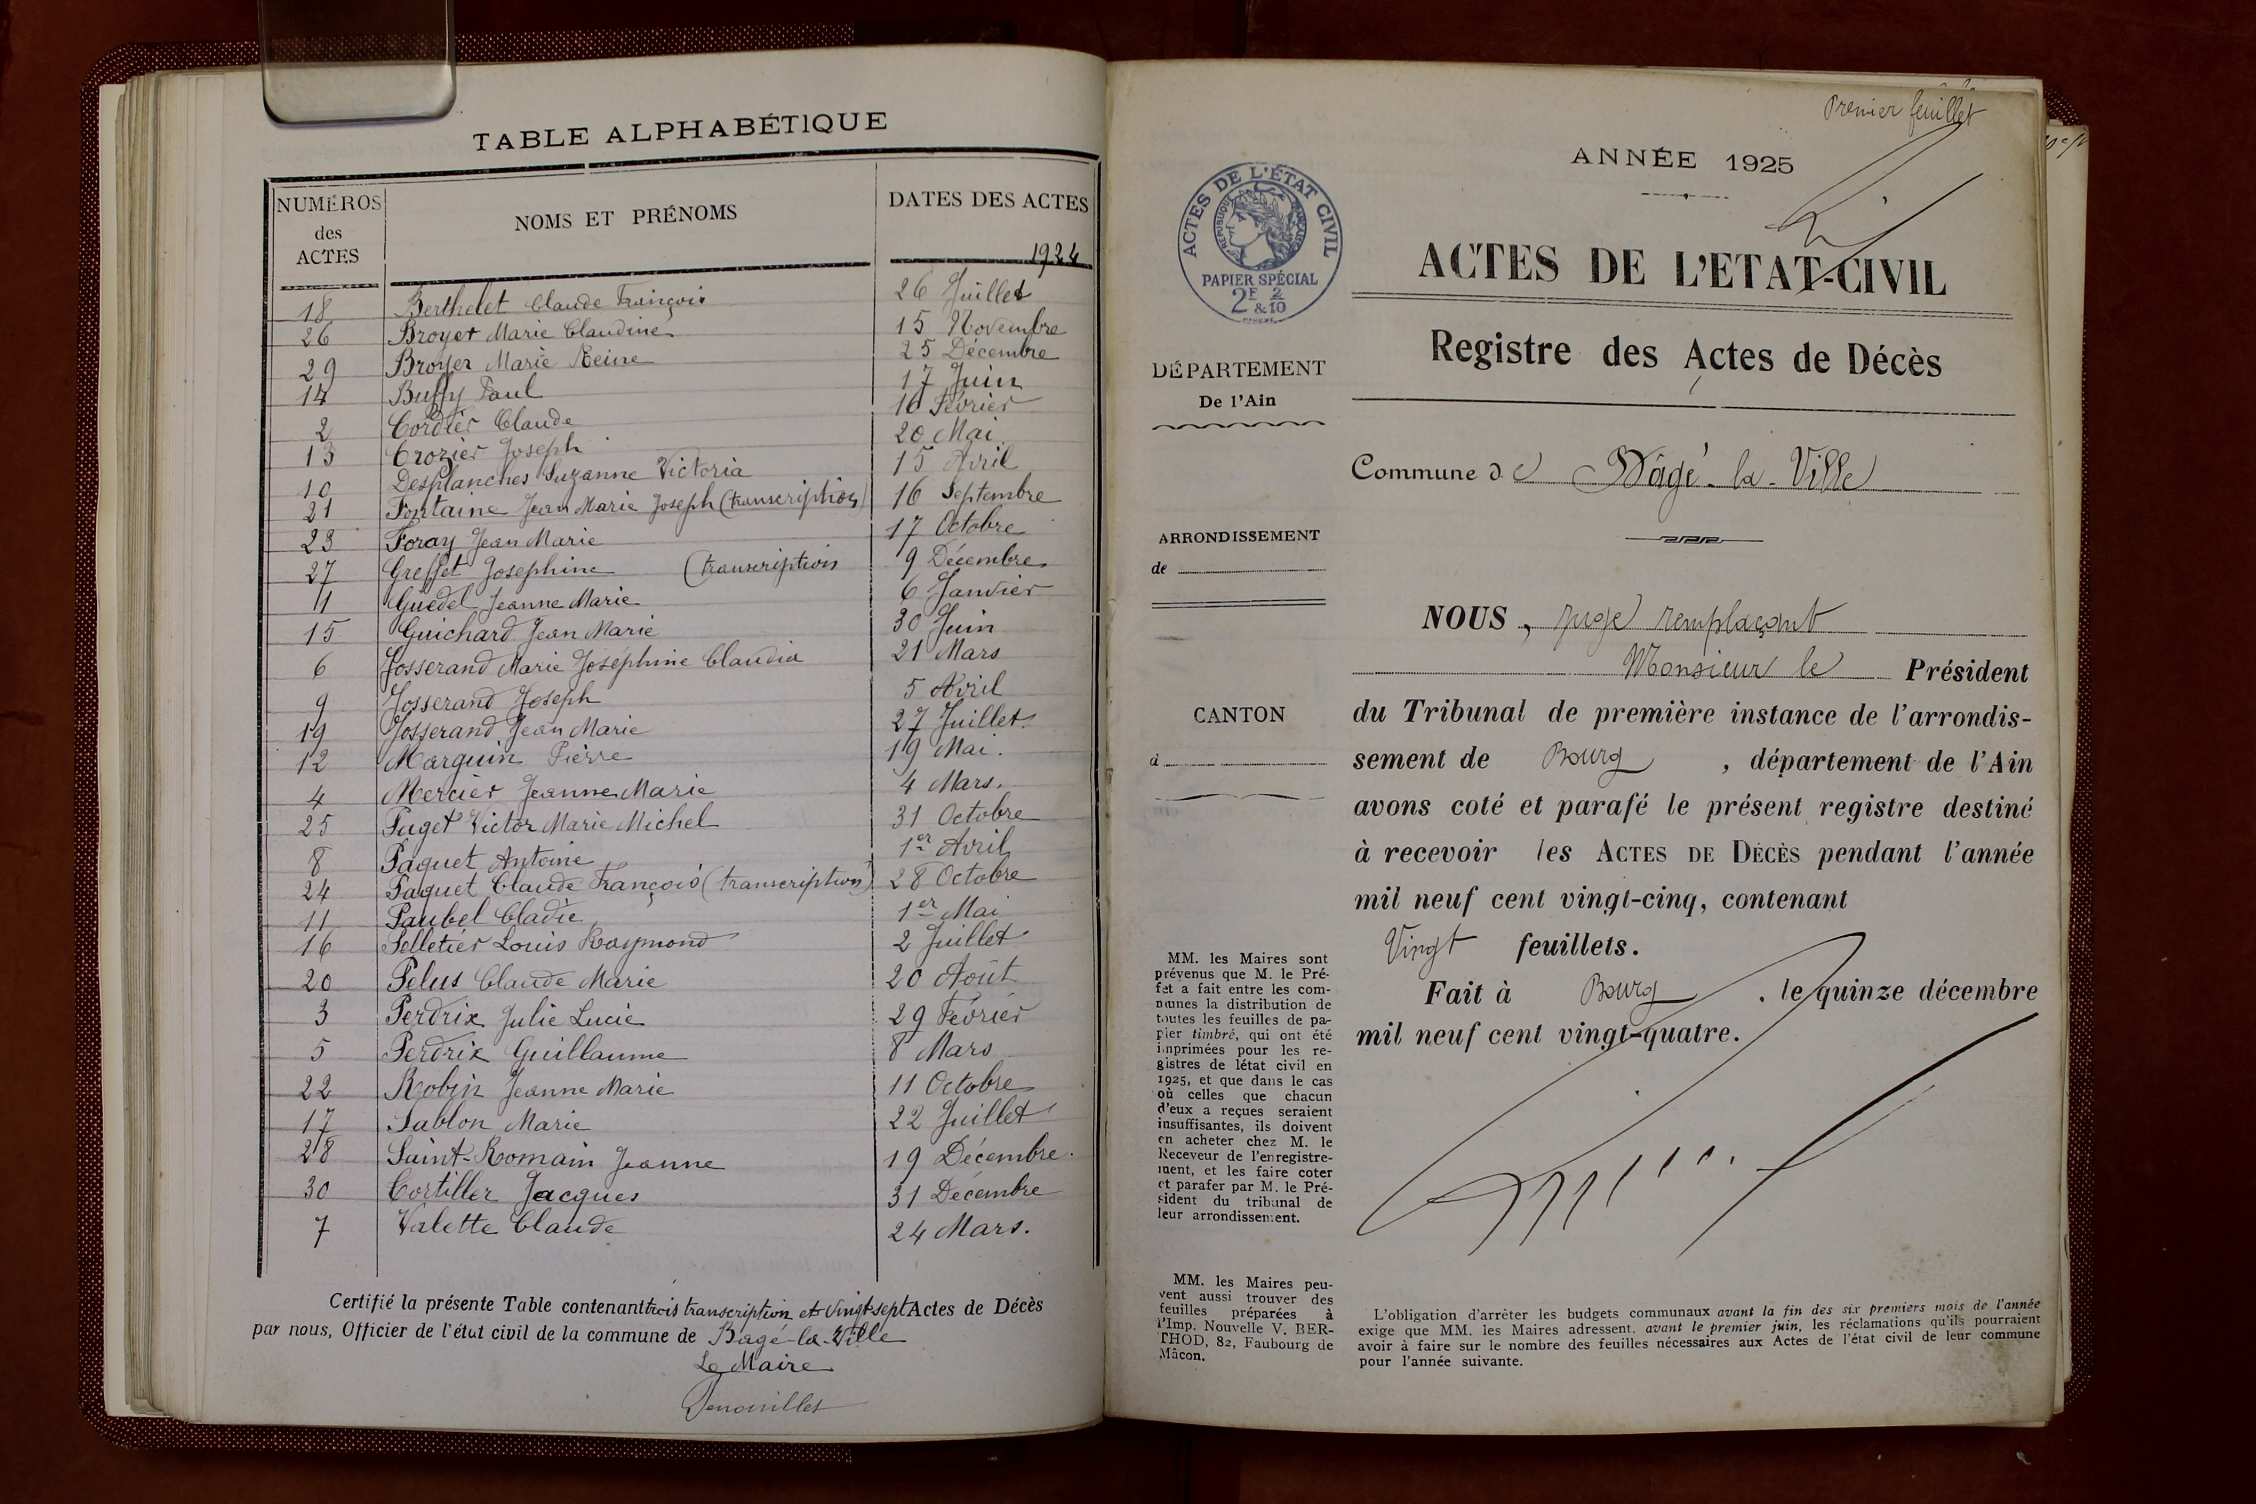 TABLE ALPHABÉTIQUE
NUMÉROS des ACTES NOMS ET PRÉNOMS DATES DES ACTES
1924
18 Berthelet Claude François 26 Juillet
26 Broyer Marie Claudine 15 Novembre
29 Broyer Marie Reine 25 Décembre
14 Buffy Paul 17 Juin
2 Cordier Claude 16 Février
13 Crozier Joseph 20 Mai
10 Desplanches Suzanne Victoria 15 Avril
21 Fontaine Jean Marie Joseph (transcription) 16 Septembre
23 Foray Jean Marie 17 Octobre
27 Greffet Josephine (transcription 9 Décembre
1 Guédel Jeanne Marie 6 Janvier
15 Guichard Jean Marie 30 Juin
6 Josserand Marie Joséphine Claudia 21 Mars
9 Josserand Joseph 5 Avril
19 Josserand Jean Marie 27 Juillet
12 Marguin Pierre 19 Mai.
4 Mercier Jeanne Marie 4 Mars.
25 Paget Victor Marie Michel 31 Octobre
8 Paquet Antoine 1er Avril
24 Paquet Claude François (transcription) 28 Octobre
11 Paubel Cladie 1er Mai
16 Pelletier Louis Raymond 2 Juillet
20 Pelus Claude Marie 20 Août
3 Perdrix Julie Lucie 29 Février
5 Perdrix Guillaume 8 Mars
22 Robin Jeanne Marie 11 Octobre
17 Sablon Marie 22 Juillet
28 Saint-Romain Jeanne 19 Décembre.
30 Cortiller Jacques 31 Décembre
7 Valette Claude 24 Mars.
Certifié la présente Table contenant trois transcription et vingt sept Actes de Décès
par nous, Officier de l'état civil de la commune de Bâgé-la-Ville
Le Maire
Premier feuillet
ANNÉE 1925
ACTES DE L'ÉTAT CIVIL
RÉPUBLIQUE FRANÇAISE
PAPIER SPÉCIAL
2F 2/10
&
ACTES DE L'ETAT-CIVIL
Registre des Actes de Décès
DÉPARTEMENT
De l'Ain
Commune de Bâgé-la-Ville
ARRONDISSEMENT
de
CANTON
à
NOUS, juge remplaçant
Monsieur le Président
du Tribunal de première instance de l'arrondis-
sement de Bourg, département de l'Ain
avons coté et parafé le présent registre destiné
à recevoir les ACTES DE DÉCÈS pendant l'année
mil neuf cent vingt-cinq, contenant
Vingt feuillets.
Fait à Bourg, le quinze décembre
mil neuf cent vingt-quatre.
MM. les Maires sont
prévenus que M. le Pré-
fet a fait entre les com-
munes la distribution de
toutes les feuilles de pa-
pier timbré, qui ont été
imprimées pour les re-
gistres de létat civil en
1925, et que dans le cas
où celles que chacun
d'eux a reçues seraient
insuffisantes, ils doivent
en acheter chez M. le
Receveur de l'enregistre-
ment, et les faire coter
et parafer par M. le Pré-
sident du tribunal de
leur arrondissement.
MM. les Maires peu-
vent aussi trouver des
feuilles préparées à
l'Imp. Nouvelle V. BER-
THOD, 82, Faubourg de
Mâcon.
L'obligation d'arrêter les budgets communaux avant la fin des six premiers mois de l'année
exige que MM. les Maires adressent, avant le premier juin, les réclamations qu'ils pourraient
avoir à faire sur le nombre des feuilles nécessaires aux Actes de l'état civil de leur commune
pour l'année suivante.